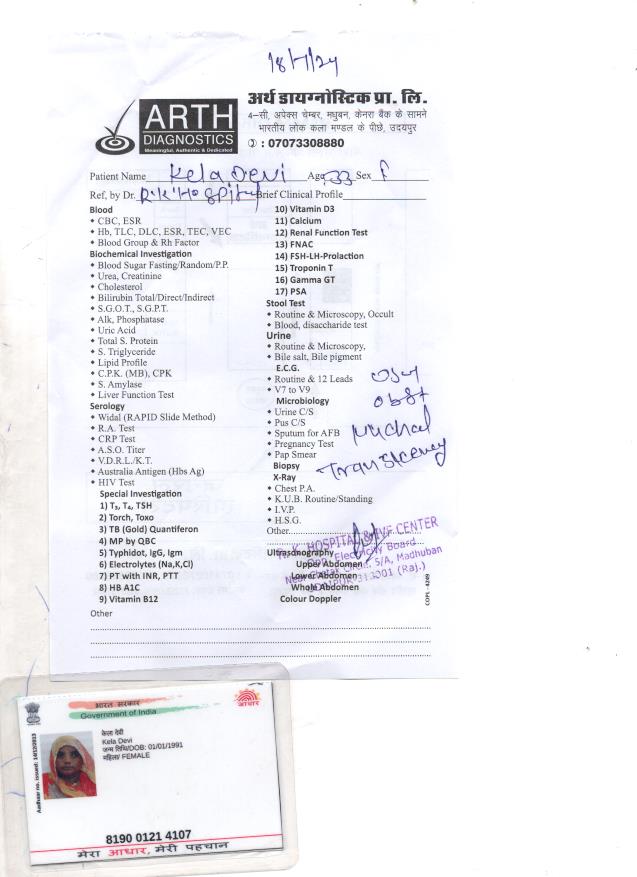 18/1/24
ARTH
DIAGNOSTICS
Meaningful, Authentic & Dedicated
अर्थ डायग्नोस्टिक प्रा. लि.
4–सी, अपेक्स चेम्बर, मधुबन, केनरा बैंक के सामने
भारतीय लोक कला मण्डल के पीछे, उदयपुर
: 07073308880
Patient Name Kela Devi Age 33 Sex F
Ref, by Dr. R.K. Hospital Brief Clinical Profile
Blood
CBC, ESR
Hb, TLC, DLC, ESR, TEC, VEC
Blood Group & Rh Factor
Biochemical Investigation
Blood Sugar Fasting/Random/P.P.
Urea, Creatinine
Cholesterol
Bilirubin Total/Direct/Indirect
S.G.O.T., S.G.P.T.
Alk, Phosphatase
Uric Acid
Total S. Protein
S. Triglyceride
Lipid Profile
C.P.K. (MB), CPK
S. Amylase
Liver Function Test
Serology
Widal (RAPID Slide Method)
R.A. Test
CRP Test
A.S.O. Titer
V.D.R.L./K.T.
Australia Antigen (Hbs Ag)
HIV Test
Special Investigation
1) T₃, T₄, TSH
2) Torch, Toxo
3) TB (Gold) Quantiferon
4) MP by QBC
5) Typhidot, IgG, Igm
6) Electrolytes (Na,K,Cl)
7) PT with INR, PTT
8) HB A1C
9) Vitamin B12
Other
10) Vitamin D3
11) Calcium
12) Renal Function Test
13) FNAC
14) FSH-LH-Prolaction
15) Troponin T
16) Gamma GT
17) PSA
Stool Test
Routine & Microscopy, Occult
Blood, disaccharide test
Urine
Routine & Microscopy,
Bile salt, Bile pigment
E.C.G.
Routine & 12 Leads
V7 to V9
Microbiology
Urine C/S
Pus C/S
Sputum for AFB
Pregnancy Test
Pap Smear
Biopsy
X-Ray
Chest P.A.
K.U.B. Routine/Standing
I.V.P.
H.S.G.
Other
Ultrasonography
Upper Abdomen
Lower Abdomen
Whole Abdomen
Colour Doppler
obst
Nuchal
R. K. HOSPITAL & IVF CENTER
Opp. Electricity Board
5/A, Madhuban
313001 (Raj.)
COPL - 4249
भारत सरकार
Government of India
आधार
Aadhaar no. issued: 14/12/2013
केला देवी
Kela Devi
जन्म तिथि/DOB: 01/01/1991
महिला/ FEMALE
8190 0121 4107
मेरा आधार, मेरी पहचान